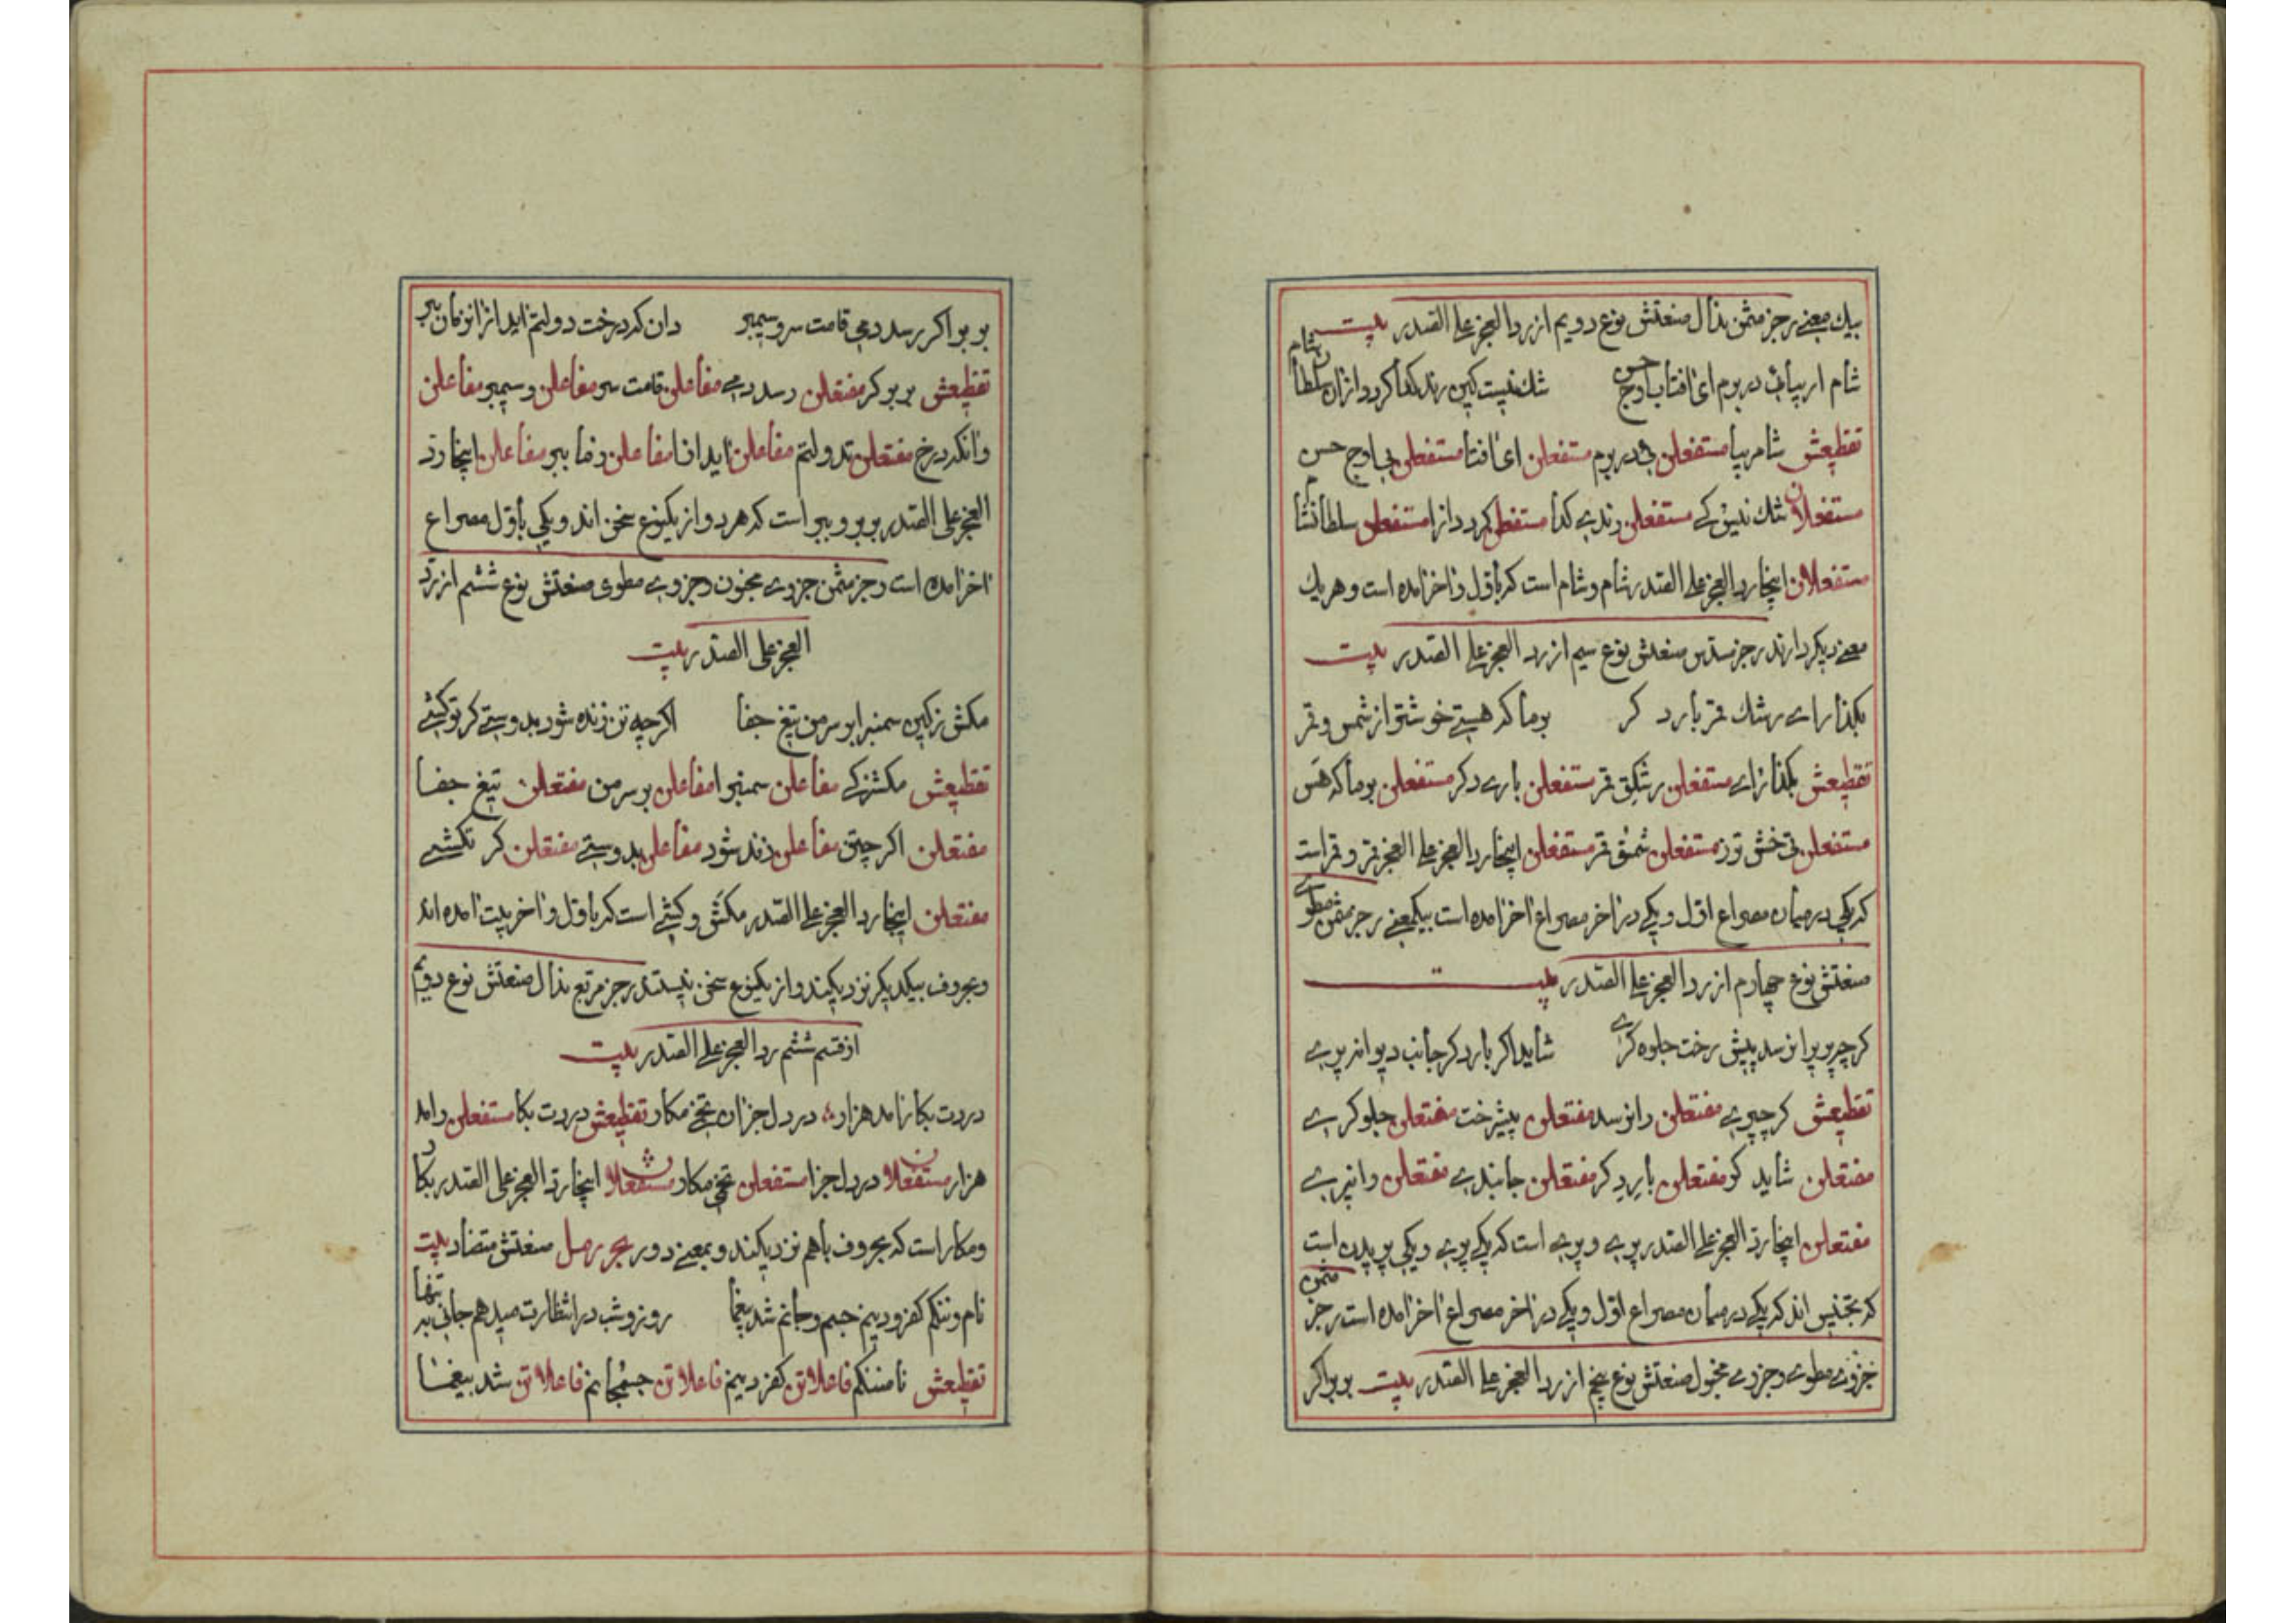 بیك معنے رجز مثمن مذال صنعتش نوع دویم از رد العجز علے الصدر بیت
شام ار بیائے در برم ای افتاب اوج حسن شك نیست کین رند کدا کردد ازان سلطان شام
تقطیعش شام ر بیا مستفعلن ئی در برم مستفعلن ای افتا مستفعلن بی اوج حسن
مستفعلان شك نیس کے مستفعلن رندے کدا مستفعلن کردد ازا مستفعلن سلطان شا
مستفعلان اینجا رد العجز علے الصدر شام و شام است که باول و اخر امده است و هریك
معنے دیکر دارند رجز مسدس صنعتش نوع سیم از رد العجز علے الصدر بیت
بکذار اے رشك قمر بارد کر بر ما که هستے خوشتر از شمس و قمر
تقطیعش بکذار اے مستفعلن رشکے قمر مستفعلن بارے دکر مستفعلن بر ما که هس
مستفعلن تی خش ترز مستفعلن شمس قمر مستفعلن اینجا رد العجز علے العجز قمر و قمر است
که یکی در میان مصراع اول و یکے در اخر مصراع اخر امده است بیکمعنے رجز مثمن مطوے
صنعتش نوع چهارم از رد العجز علے الصدر بیت
کرچه پری را نرسد پیش رخت جلوه کرے شاید اکر بارد کر جانب دیوانه پرے
تقطیعش کرچپرے مفتعلن رانرسد مفتعلن پیشرخت مفتعلن جلوکرے
مفتعلن شاید کر مفتعلن بارد کر مفتعلن جانبدے مفتعلن وانپرے
مفتعلن اینجا رد العجز علے الصدر پرے و پرے است که یکے پرے و یکی پریدن است
که بتجنیس اند که یکے در میان مصراع اول و یکے در اخر مصراع اخر امده است رجز مثمن
جزوے مطوے و جزوے مخبول صنعتش نوع پنجم از رد العجز علے الصدر بیت بر براکر
بر براکر رسد دمی قامت سرو سیمبر دان که درخت دولتم اید از انزمان ببر
تقطیعش بر برکر مفتعلن رسد دمے مفاعلن قامت سر مفاعلن و سیمبر مفاعلن
دانکدرخ مفتعلن تدولتم مفاعلن اید ازا مفاعلن زما ببر مفاعلن اینجا رد
العجز علی الصدر بر بر و ببر است که هر دو از یکنوع سخن اند و یکی باول مصراع
اخر امده است رجز مثمن جزوے مخبون و جزوے مطوی صنعتش نوع ششم از رد
العجز علی الصدر بیت
مکش ز کین سمنبرا بر سر من تیغ جفا اکرچه تن زنده شود بدوستے کر تو کشے
تقطیعش مکشزکے مفاعلن سمنبرا مفاعلن بر سر من مفتعلن تیغ جفا
مفتعلن اکرچتن مفاعلن زند شود مفاعلن بدوستے مفتعلن کر تکشے
مفتعلن اینجا رد العجز علے الصدر مکش و کشے است که باول و اخر بیت امده اند
و بحروف بیکدیکر نزدیکند و از یکنوع سخن نیستند رجز مربع مذال صنعتش نوع دویم
از قسم ششم رد العجز علے الصدر بیت
دردت بکار امد هزار در دل جزان تخم مکار تقطیعش دردت بکا مستفعلن رامد
هزار مستفعلان در دل جزا مستفعلن تخمی مکار مستفعلان اینجا رد العجز علی الصدر بکار
و مکار است که بحروف باهم نزدیکند و بمعنے دور بحر رمل صنعتش متضاد بیت
نام و ننکم کفر و دینم جسم و جانم شد بیغما روز و شب در انتظارت میدهم جانی به تنها
تقطیعش نامننکم فاعلاتن کفر دینم فاعلاتن جسمجانم فاعلاتن شد بیغما